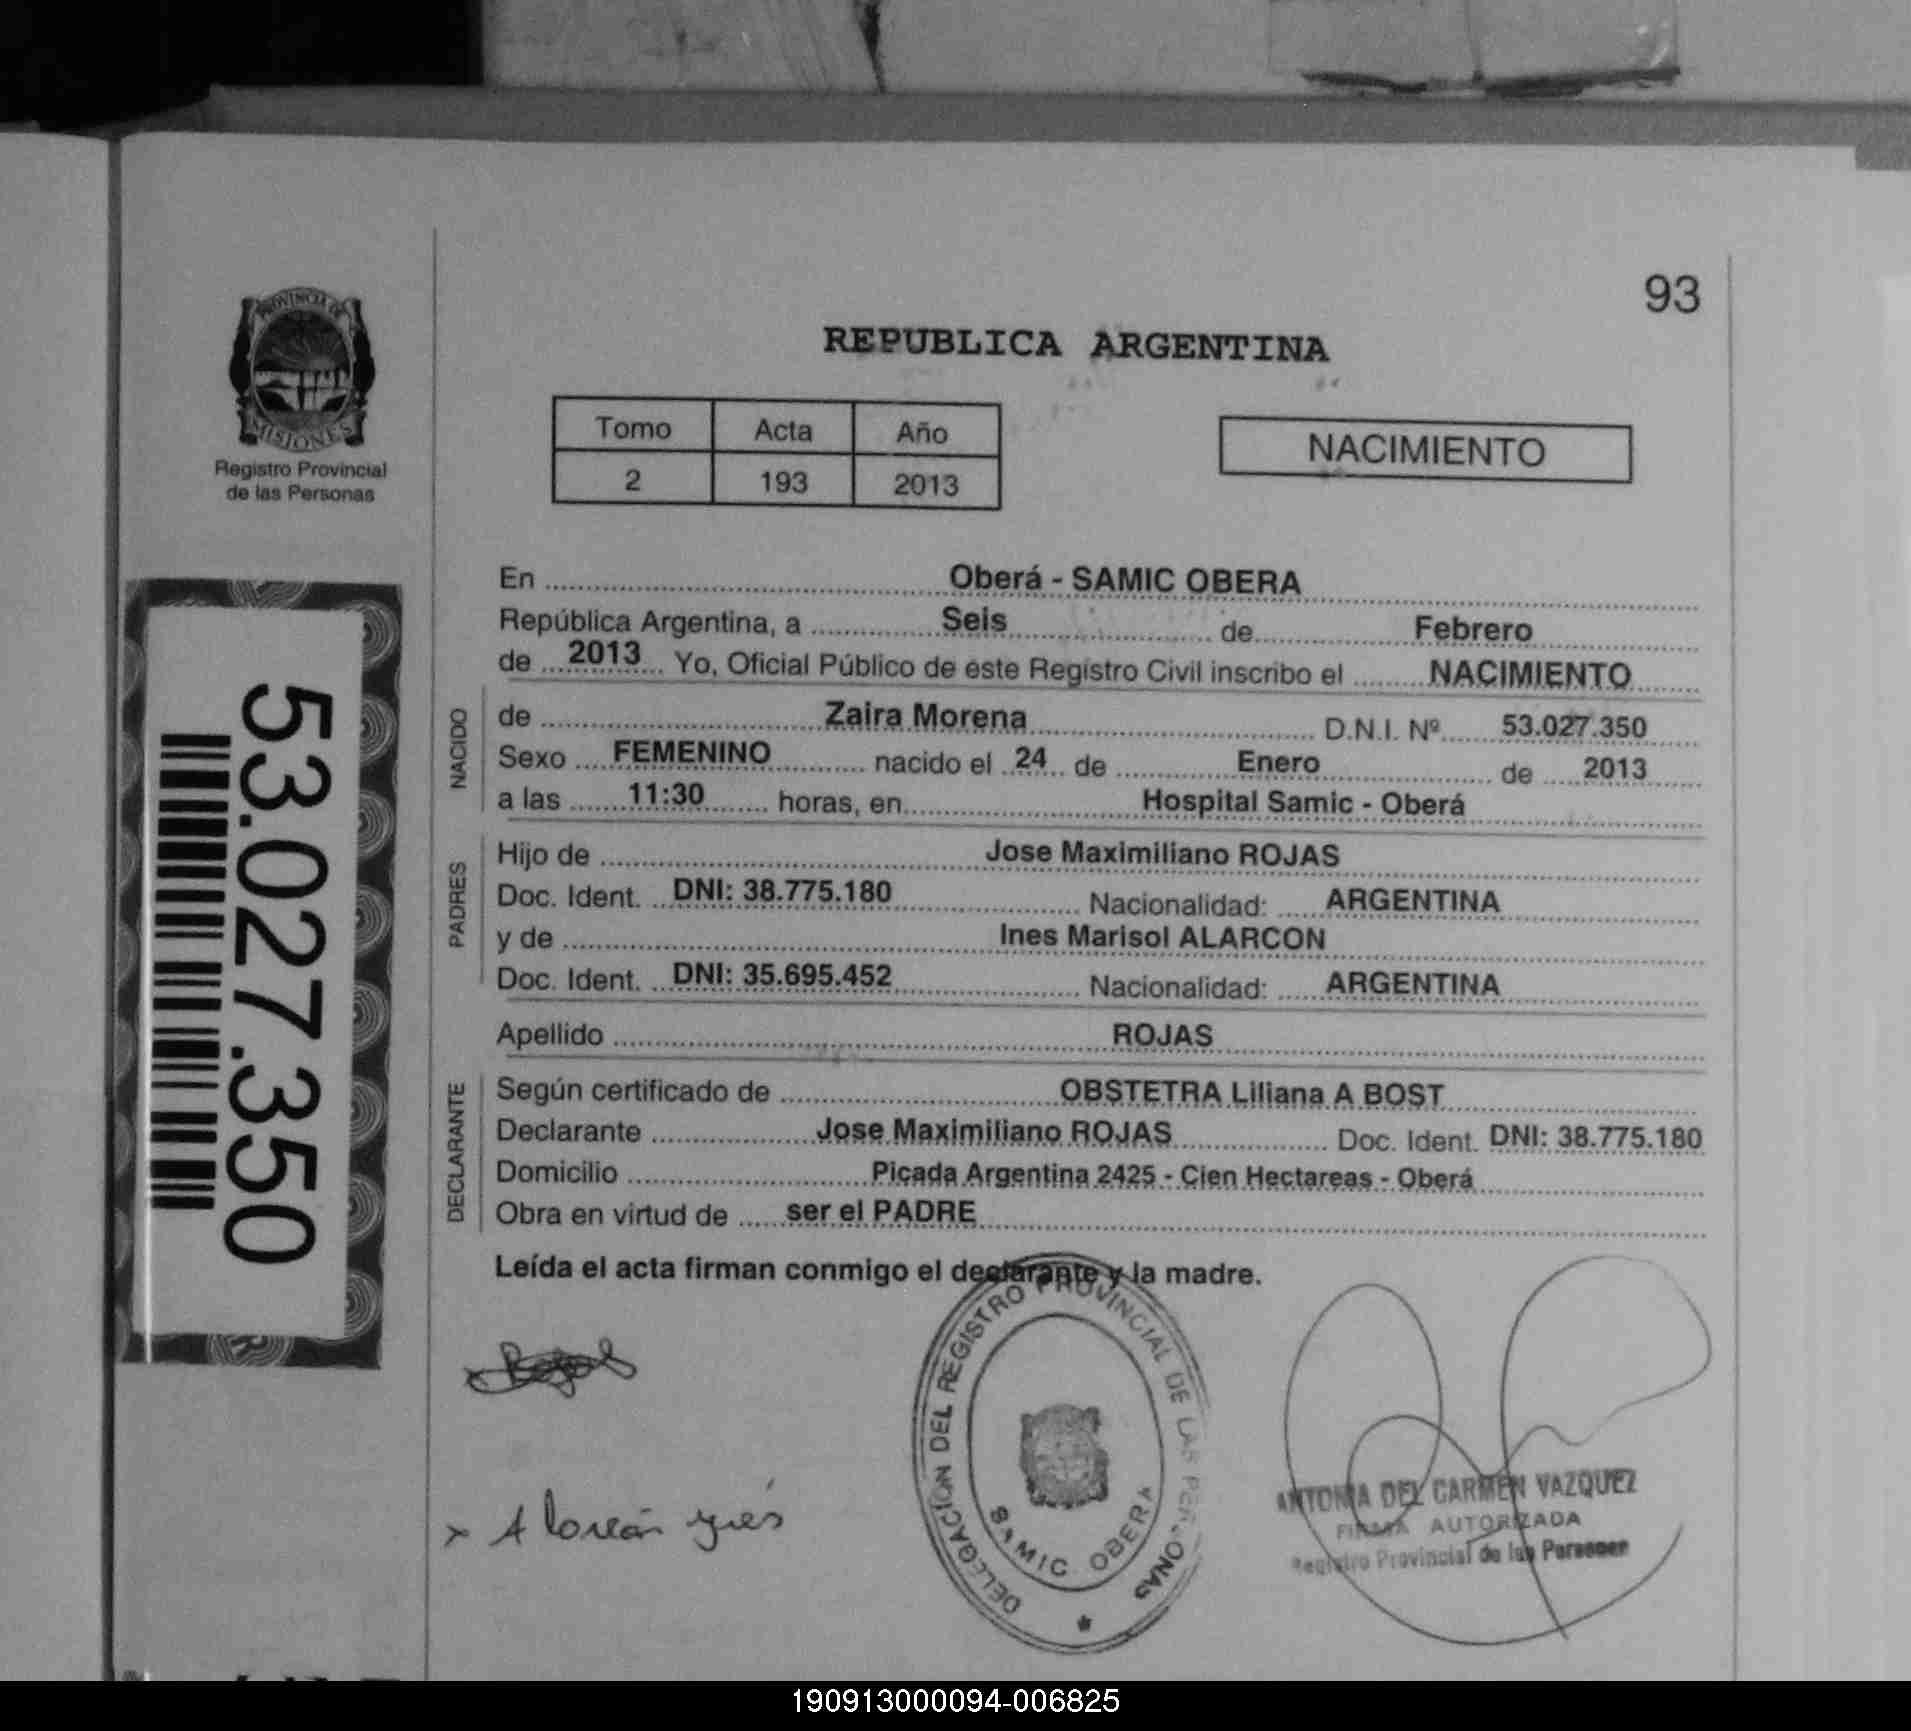 93
PROVINCIA DE
MISIONES
Registro Provincial
de las Personas
REPUBLICA ARGENTINA
Tomo Acta Año
2 193 2013
NACIMIENTO
53.027.350
En Oberá - SAMIC OBERA
República Argentina, a Seis de Febrero
de 2013 Yo, Oficial Público de este Registro Civil inscribo el NACIMIENTO
NACIDO
de Zaira Morena D.N.I. Nº 53.027.350
Sexo FEMENINO nacido el 24 de Enero de 2013
a las 11:30 horas, en Hospital Samic - Oberá
PADRES
Hijo de Jose Maximiliano ROJAS
Doc. Ident. DNI: 38.775.180 Nacionalidad: ARGENTINA
y de Ines Marisol ALARCON
Doc. Ident. DNI: 35.695.452 Nacionalidad: ARGENTINA
Apellido ROJAS
DECLARANTE
Según certificado de OBSTETRA Liliana A BOST
Declarante Jose Maximiliano ROJAS Doc. Ident. DNI: 38.775.180
Domicilio Picada Argentina 2425 - Cien Hectareas - Oberá
Obra en virtud de ser el PADRE
Leída el acta firman conmigo el declarante y la madre.
x Rojas
DELEGACION DEL REGISTRO PROVINCIAL DE LAS PERSONAS
SAMIC OBERA
ANTONIA DEL CARMEN VAZQUEZ
FIRMA AUTORIZADA
Registro Provincial de las Personas
190913000094-006825